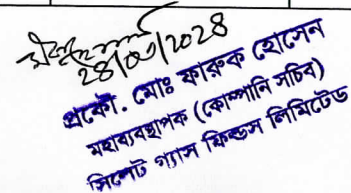 28/07/2024
প্রকৌ. মোঃ ফারুক হোসেন
মহাব্যবস্থাপক (কোম্পানি সচিব)
সিলেট গ্যাস ফিল্ডস লিমিটেড